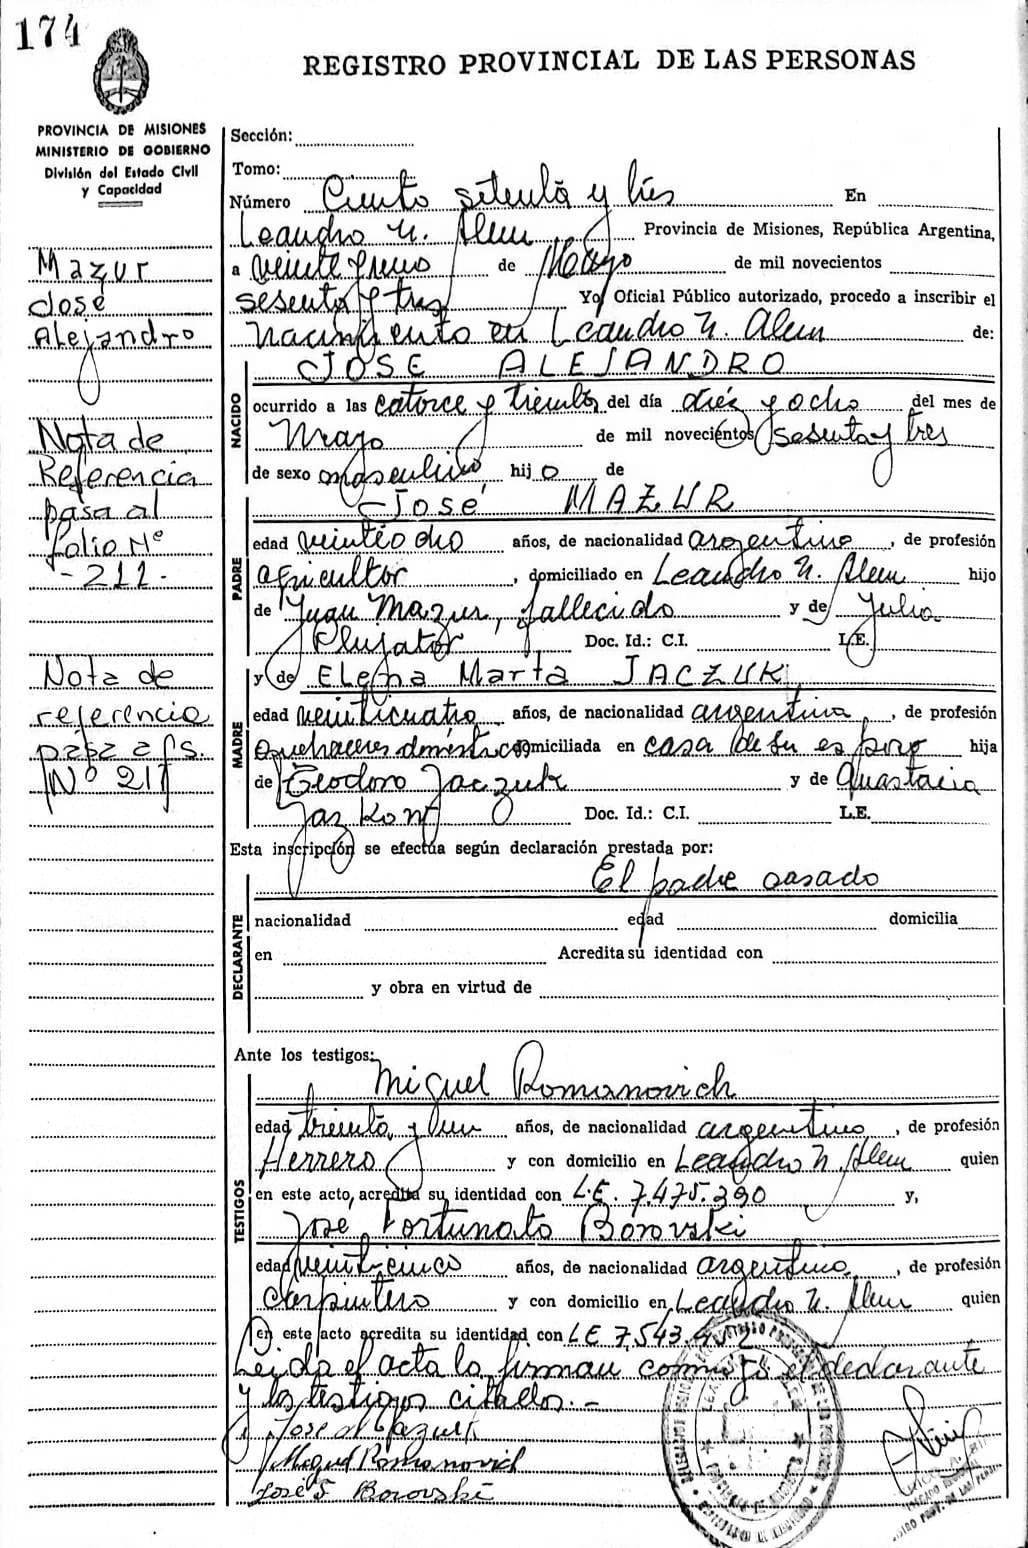 174
REGISTRO PROVINCIAL DE LAS PERSONAS
PROVINCIA DE MISIONES
MINISTERIO DE GOBIERNO
División del Estado Civil
y Capacidad
Mazur
José
Alejandro
Nota de
Referencia
pasa al
folio Nº
-211-
Nota de
referencia
pasa a fs.
Nº 211
Sección:
Tomo:
Número Ciento setenta y tres En
Leandro N. Alem Provincia de Misiones, República Argentina,
a veinte y uno de Mayo de mil novecientos
sesenta y tres Yo, Oficial Público autorizado, procedo a inscribir el
nacimiento en Leandro N. Alem de:
NACIDO
JOSE ALEJANDRO
ocurrido a las catorce y treinta del día diéz y ocho del mes de
Mayo de mil novecientos sesenta y tres
de sexo masculino hijo de
PADRE
José MAZUR
edad veintiocho años, de nacionalidad argentino, de profesión
agricultor, domiciliado en Leandro N. Alem hijo
de Juan Mazur, fallecido y de Julia
Doc. Id.: C.I. L.E.
MADRE
y de Elena Marta JACZUK
edad veinticuatro años, de nacionalidad argentina, de profesión
quehaceres domésticos domiciliada en casa de su esposo hija
de Teodoro Jaczuk y de Anastacia
Doc. Id.: C.I. L.E.
Esta inscripción se efectúa según declaración prestada por:
DECLARANTE
El padre casado
nacionalidad edad domicilia
en Acredita su identidad con
y obra en virtud de
Ante los testigos:
TESTIGOS
Miguel Romanovich
edad treinta y un años, de nacionalidad argentino, de profesión
Herrero y con domicilio en Leandro N. Alem quien
en este acto, acredita su identidad con L.E. 7.475.390 y,
José Fortunato Borovski
edad veinticinco años, de nacionalidad argentino, de profesión
carpintero y con domicilio en Leandro N. Alem quien
en este acto acredita su identidad con LE 7.543.
Leida el acta la firman conmigo el declarante
y los testigos citados.-
José Mazur
Miguel Romanovich
José F. Borovski